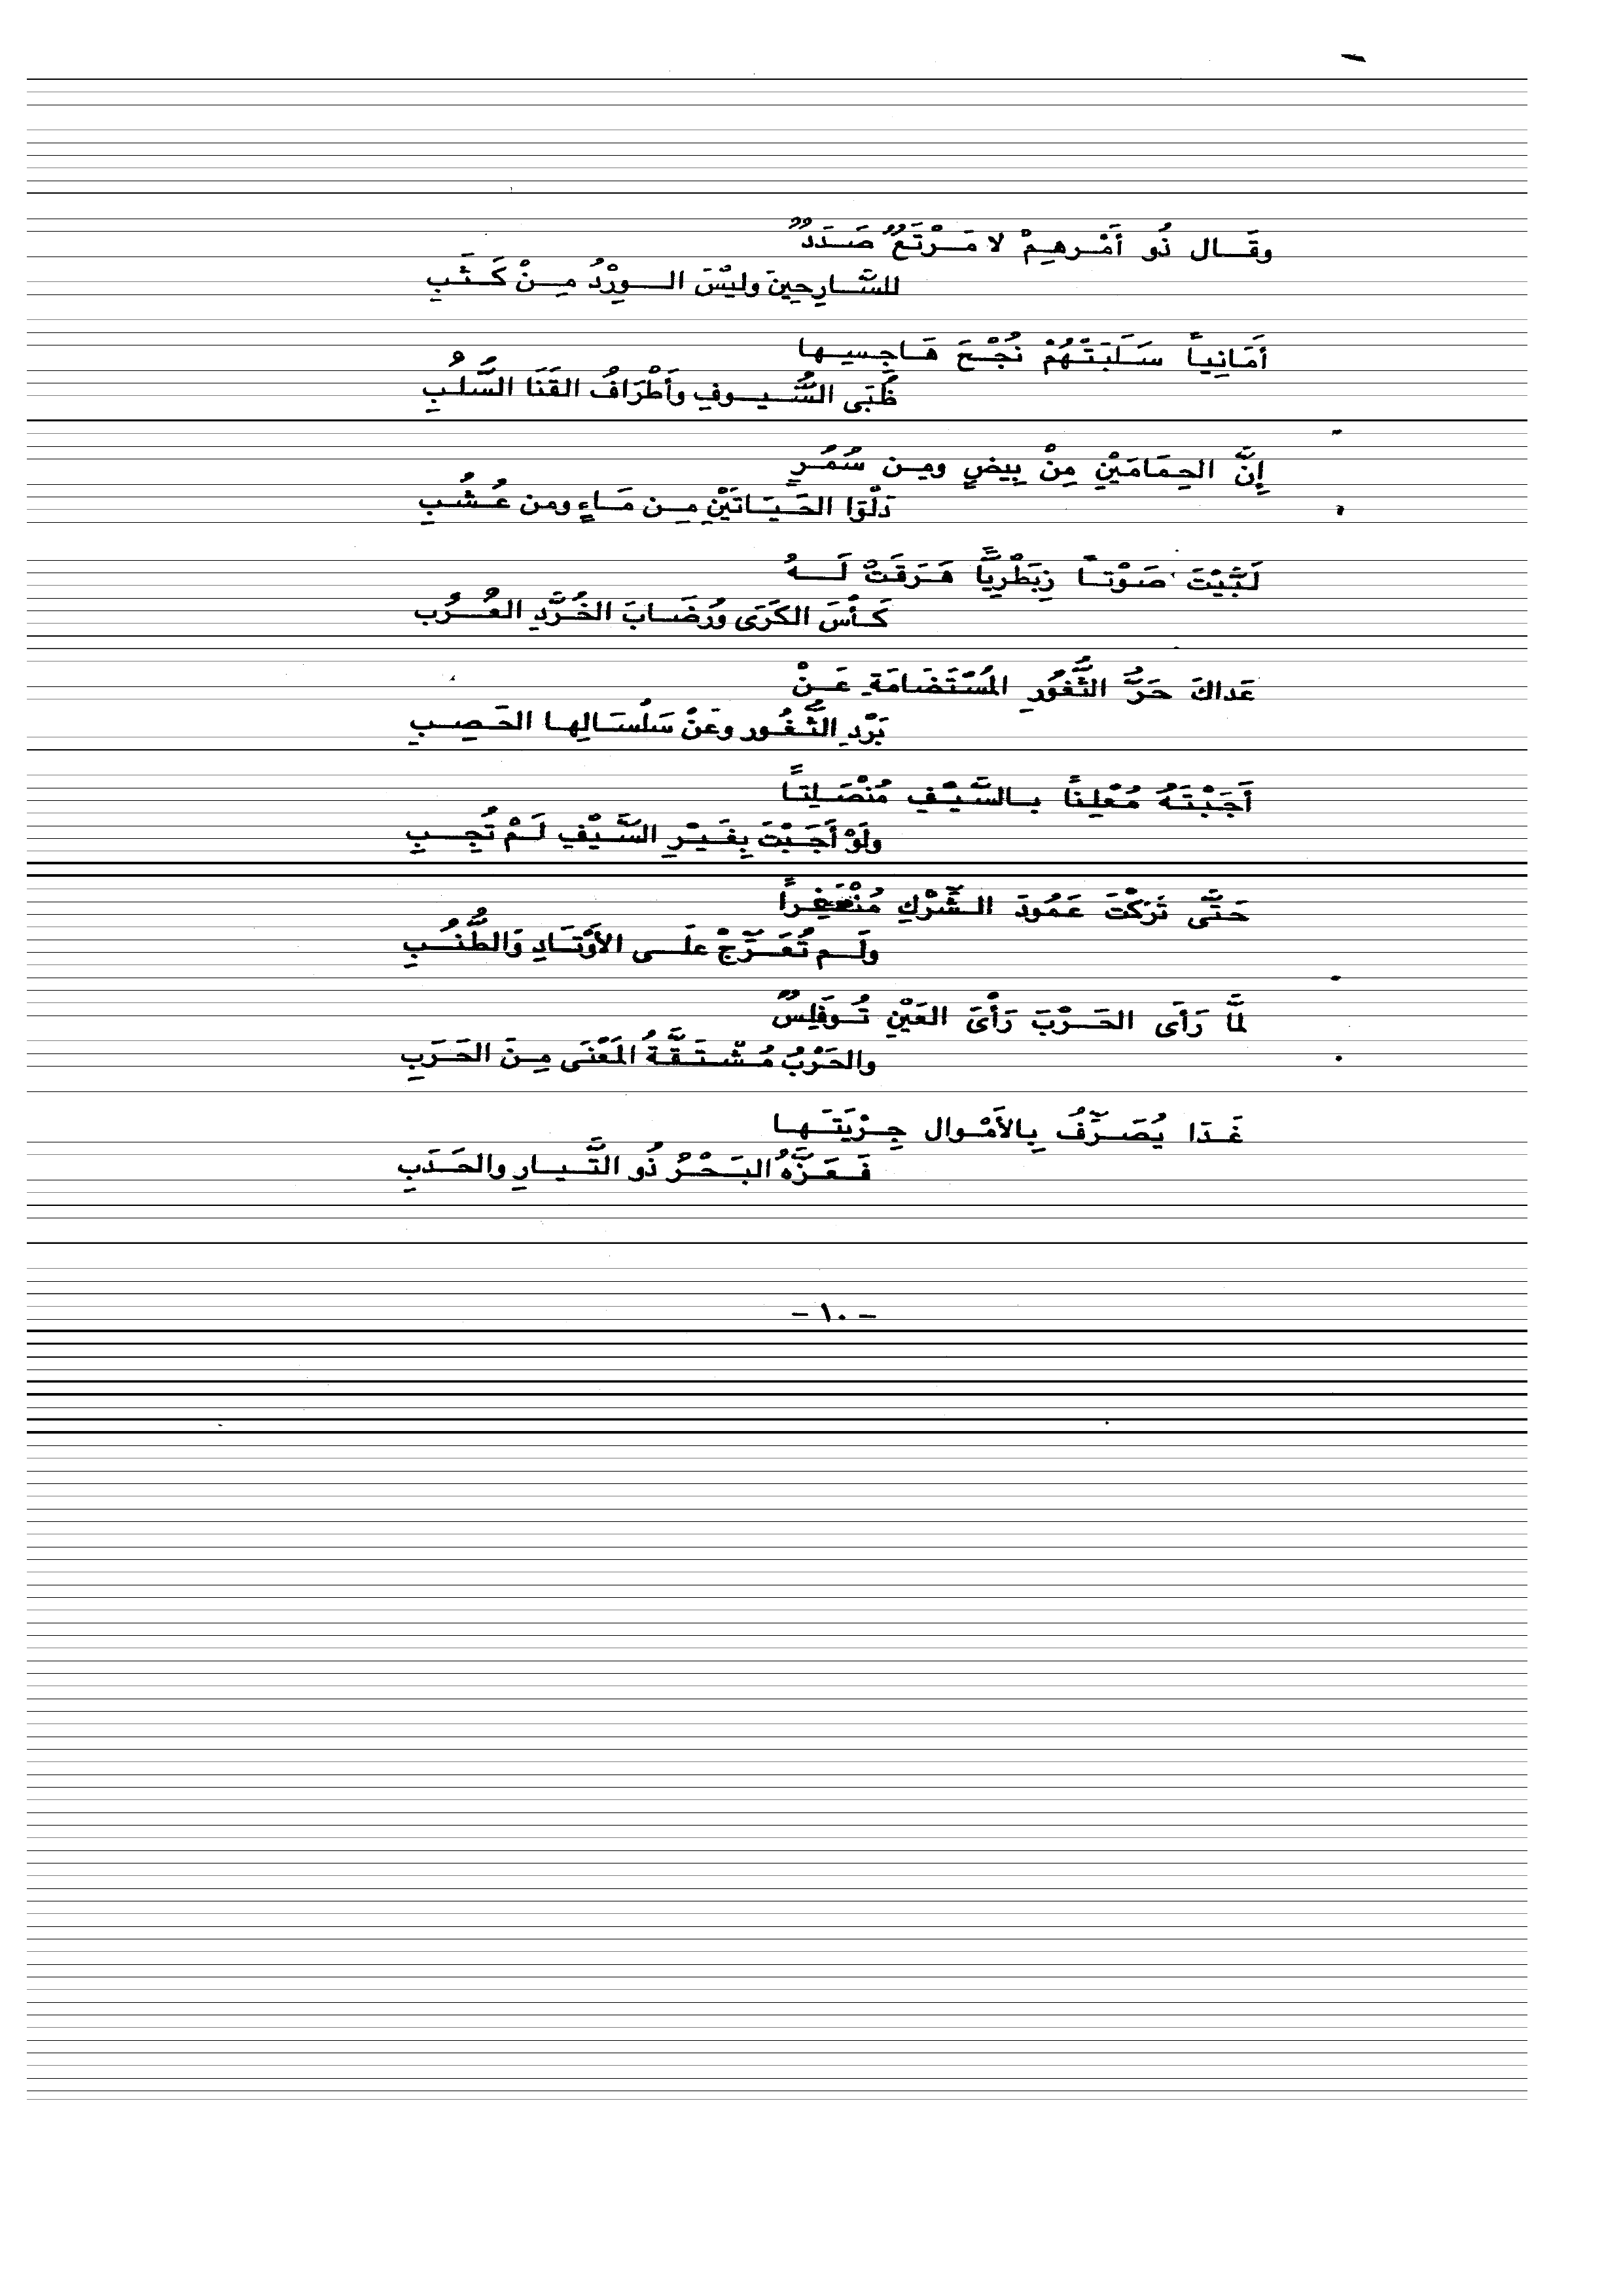 وقَال ذُو أَمْرهِمْ لا مَرْتَعٌ صَدَدٌ
للسَّارِحِينَ وليْسَ الوِرْدُ مِنْ كَثَبِ
أَمَانِياً سَلَبَتْهُمْ نُجْحَ هَاجِسِها
ظُبَى السُّيوفِ وأَطْرَافُ القَنَا السُّلُبِ
إِنَّ الحِمَامَيْنِ مِنْ بِيضٍ ومِن سُمُرٍ
دَلْوَا الحَيَاتَيْنِ مِن مَاءٍ ومن عُشُبِ
لَبَّيْتَ صَوْتاً زِبَطْرِيًّا هَرَقَتْ لَهُ
كَأْسَ الكَرَى ورُضَابَ الخُرَّدِ العُرُب
عَداكَ حَرُّ الثُّغُورِ المُسْتَضَامَةِ عَنْ
بَرْدِ الثُّغُور وعَنْ سَلْسَالِها الحَصِبِ
أَجَبْتَهُ مُعْلِناً بالسَّيْفِ مُنْصَلِتاً
ولَوْ أَجَبْتَ بِغَيْرِ السَّيْفِ لَمْ تُجِبِ
حَتَّى تَرَكْتَ عَمُودَ الشِّرْكِ مُنْعَفِراً
ولَم تُعَرِّجْ علَى الأَوْتَادِ وَالطُّنُبِ
لمَّا رَأَى الحَرْبَ رَأْيَ العَيْنِ تُوفَلِسٌ
والحَرْبُ مُشْتَقَّةُ المَعْنَى مِنَ الحَرَبِ
غَدَا يُصَرِّفُ بِالأَمْوال جِزْيَتَها
فَعَزَّهُ البَحْرُ ذُو التَّيارِ والحَدَبِ
- ١٠ -